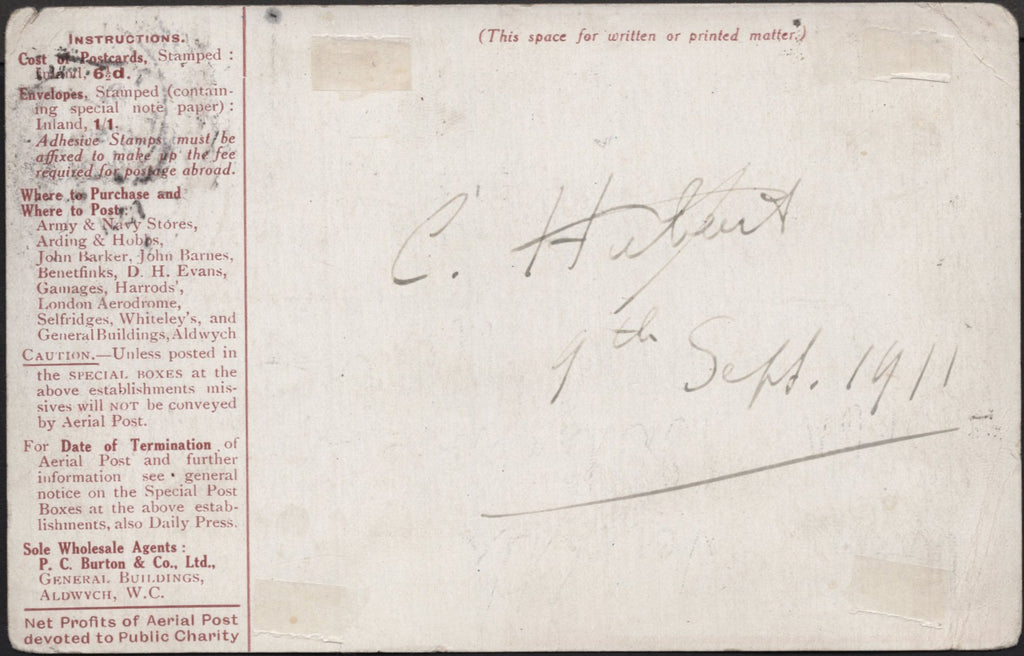 INSTRUCTIONS.
Cost of Postcards, Stamped :
Inland, 6½d.
Envelopes, Stamped (contain-
ing special note paper) :
Inland, 1/1.
Adhesive Stamps must be
affixed to make up the fee
required for postage abroad.
Where to Purchase and
Where to Post:
Army & Navy Stores,
Arding & Hobbs,
John Barker, John Barnes,
Benetfinks, D. H. Evans,
Gamages, Harrods',
London Aerodrome,
Selfridges, Whiteley's, and
General Buildings, Aldwych
CAUTION.—Unless posted in
the SPECIAL BOXES at the
above establishments mis-
sives will NOT be conveyed
by Aerial Post.
For Date of Termination of
Aerial Post and further
information see general
notice on the Special Post
Boxes at the above estab-
lishments, also Daily Press.
Sole Wholesale Agents :
P. C. Burton & Co., Ltd.,
GENERAL BUILDINGS,
ALDWYCH, W.C.
Net Profits of Aerial Post
devoted to Public Charity
(This space for written or printed matter.)
C. Hubert
9th Sept. 1911